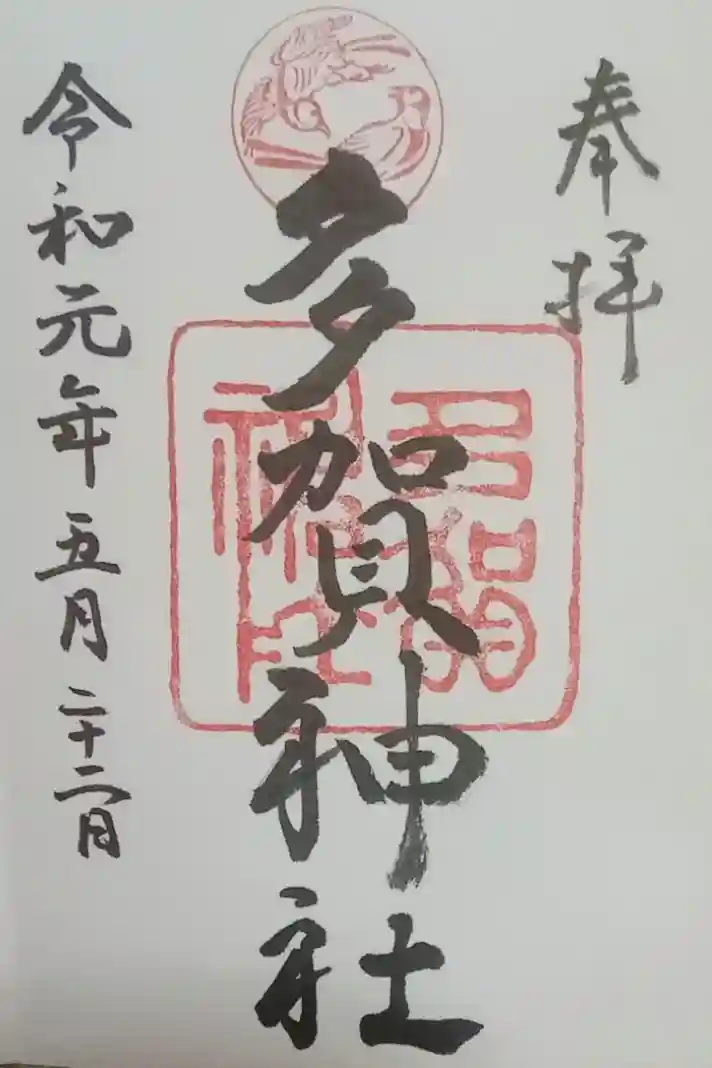 奉拝
多賀神社
令和元年五月二十二日